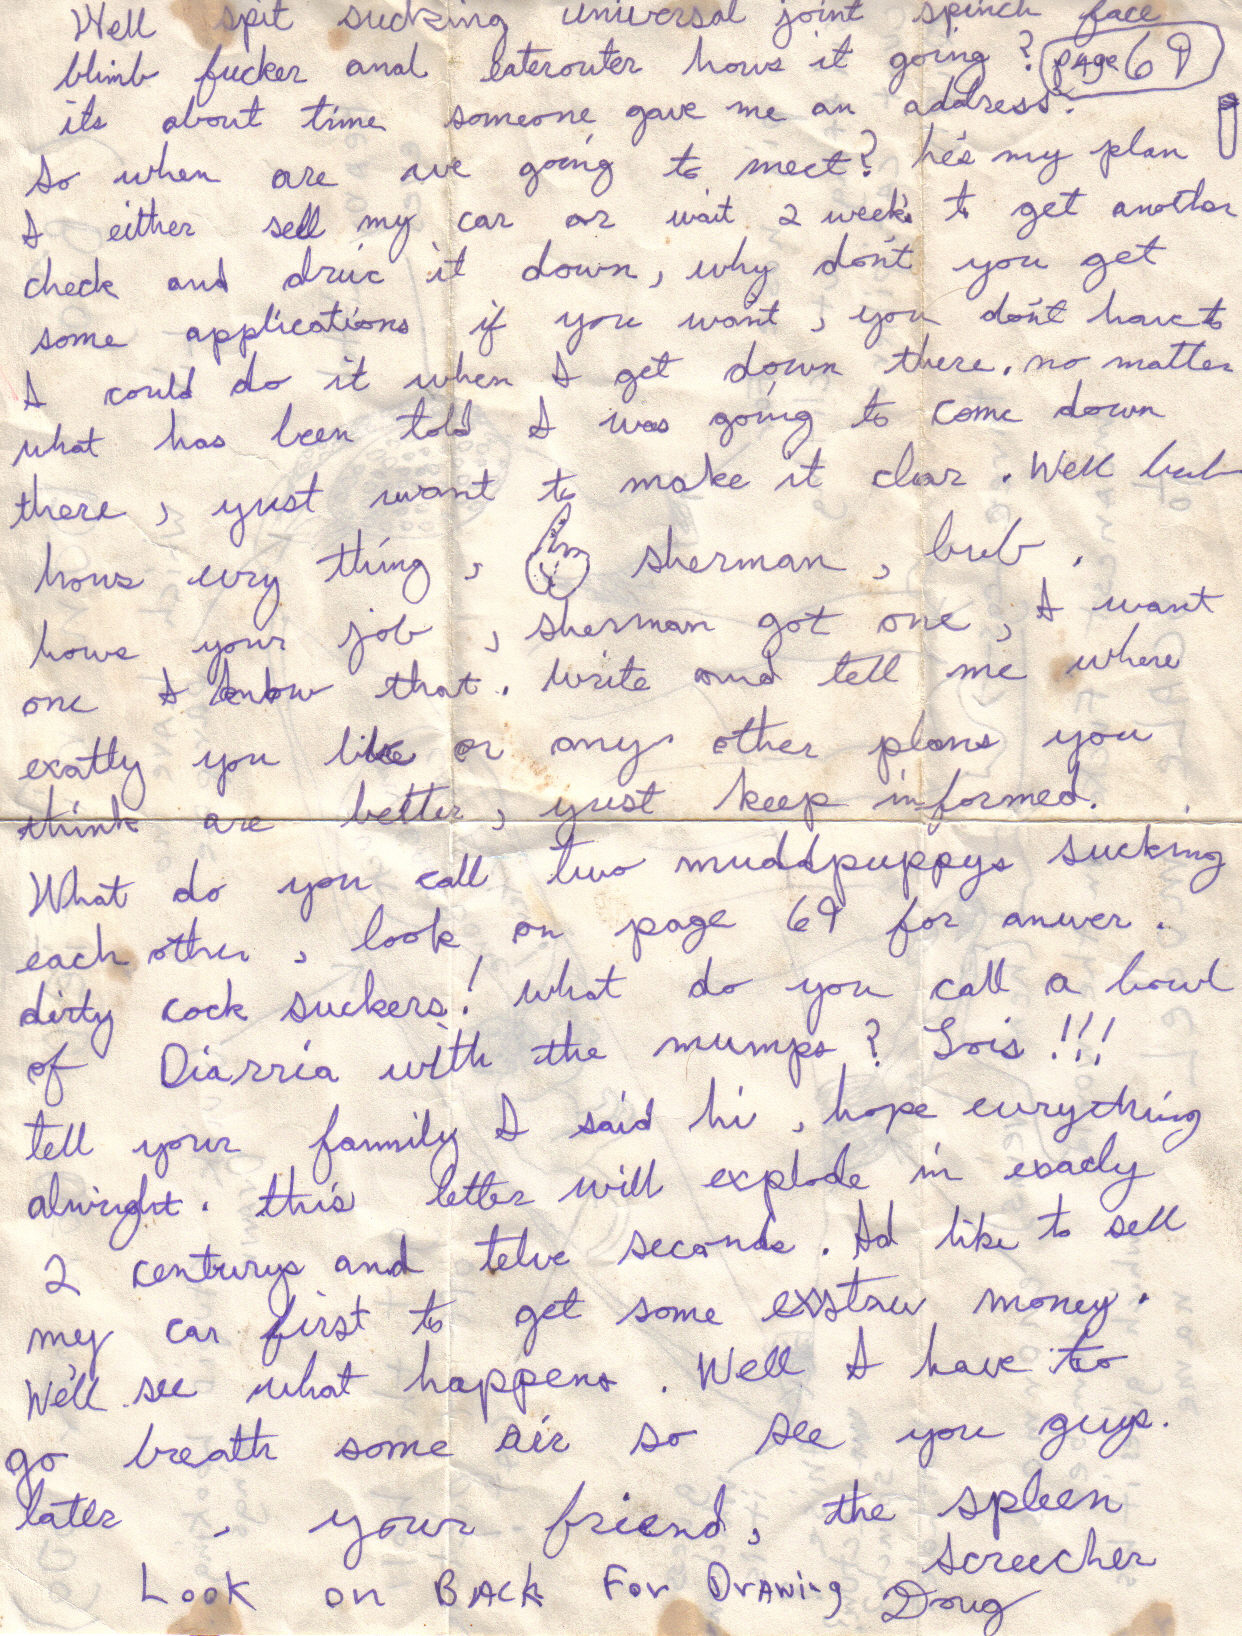 Well spit sucking universal joint spinch face
blimb fucker anal eaterouter hows it going? page 69
its about time someone gave me an address.
So when are we going to meet? he's my plan
I either sell my car or wait 2 week's to get another
check and drive it down, why don't you get
some applications if you want, you don't have to
I could do it when I get down there. no matter
what has been told I was going to come down
there, yust want to make it clear. Well bub
hows evry thing, sherman, bub.
hows your job, sherman got one, I want
one I know that. Write and tell me where
exatly you like or any other plans you
think are better, yust keep informed.
What do you call two muddpuppys sucking
each other, look on page 69 for anwer.
dirty cock suckers! what do you call a bowl
of Diarria with the mumps? Lois!!!
tell your fammily I said hi, hope eurything
alwright. this letter will explode in exacly
2 centurys and telve seconds. Id like to sell
my car first to get some exstraw money.
We'll see what happens. Well I have to
go breath some air so see you guys.
later, your friend, the spleen
screecher
Look on BACK For DrAwing Doug